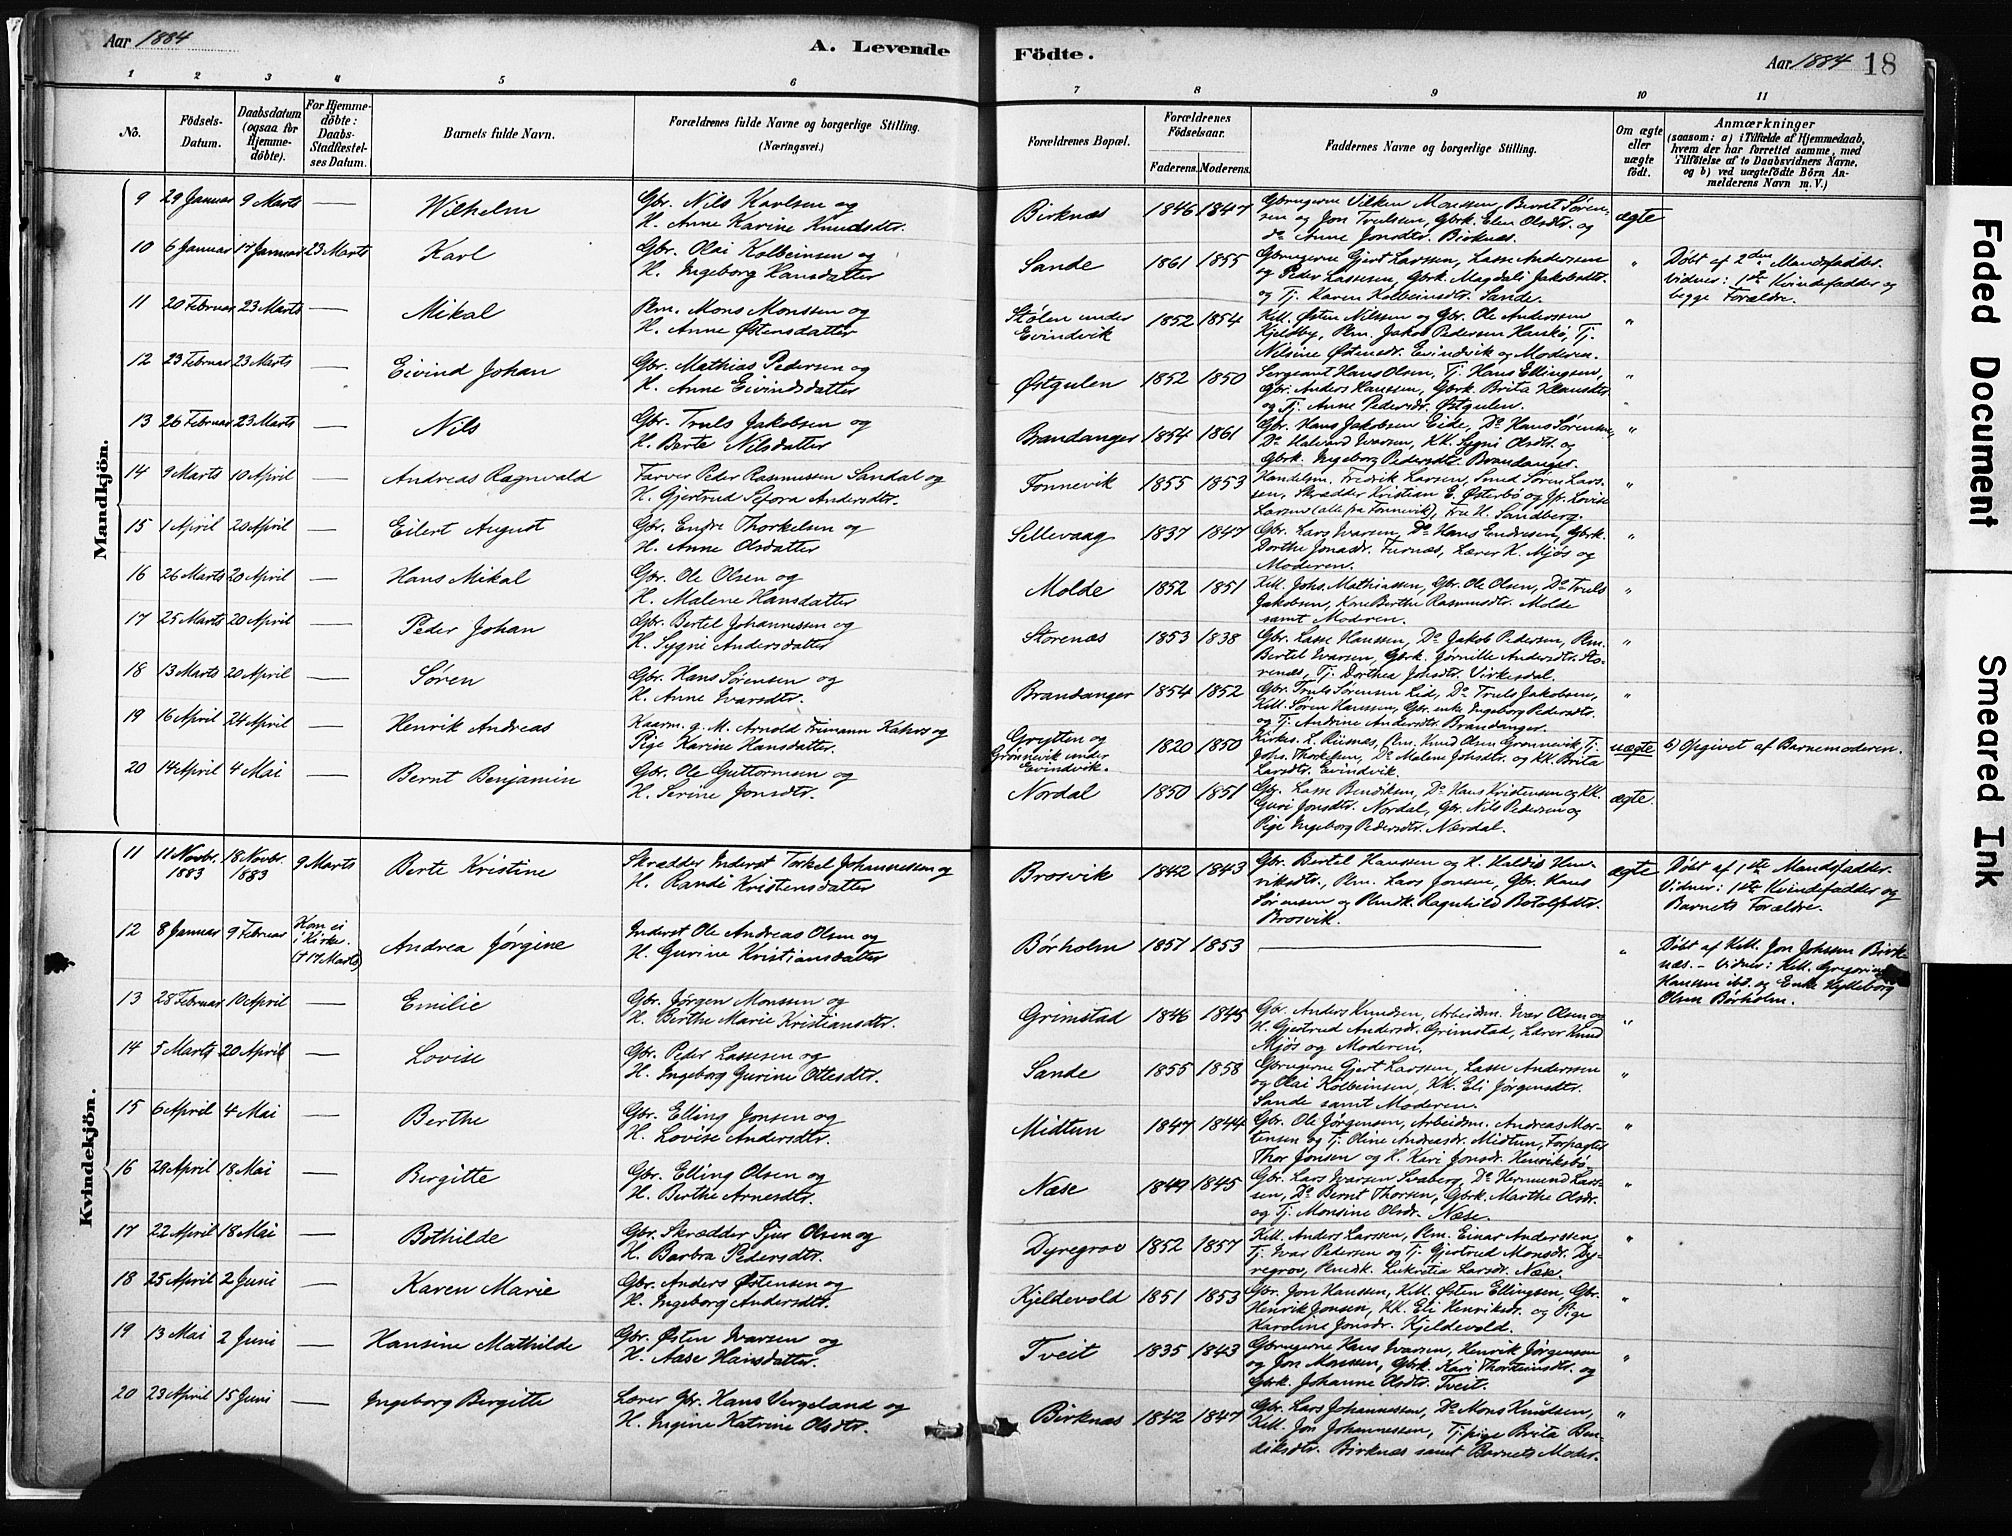 Aar 1884
A. Levende
Födte.
Aar 1884
18
1 2 3 4 5 6 7 8 9 10 11
No.
Födsels-
Datum.
Daabsdatum
(ogsaa for
Hjemme-
döbte).
For Hjemme-
döbte:
Daabs-
Stadfæstel-
ses Datum.
Barnets fulde Navn.
Forældrenes fulde Navne og borgerlige Stilling.
(Næringsvei.)
Forældrenes Bopæl.
Forældrenes
Födselsaar.
Faderens. Moderens.
Faddernes Navne og borgerlige Stilling.
Om ægte
eller
uægte
födt.
Anmærkninger
(saasom: a) i Tilfælde af Hjemmedaab,
hvem der har forrettet samme, med
Tilföielse af to Daabsvidners Navne,
og b) ved uægtefödte Börn An-
melderens Navn m. V.)
Mandkjön.
9 29 Januar 9 Marts — Wilhelm
Gbr. Nils Karlsen og
H. Anne Karine Knudsdtr.
Birknæs 1846 1847
Gbrugerne Vilken Monssen, Bernt Søren-
sen og Jon Trulssen, Gbrk. Elen Olsdtr. og
do Anne Jonsdtr. Birknæs.
ægte
10 6 Januar 17 Januar 23 Marts Karl
Gbr. Olai Kolbeinsen og
H. Ingeborg Hansdatter
Sande 1861 1855
Gbrugerne Gjert Larssen, Lasse Andersen
og Peder Lassesen, Gbrk. Magdali Jakobsdtr.
og Tj. Karen Kolbeinsdtr. Sande.
"
Døbt af 2den Mandsfadder.
Vidner: 1ste Kvindefadder og
begge Forældre.
11 20 Februar 23 Marts — Mikal
Plm. Mons Monssen og
H. Anne Østensdatter
Stølen under
Evindvik 1852 1854
Kell. Østen Nilssen og Gbr. Ole Anderssen
Kjeldby, Plm. Jakob Pedersen Henskø, Tj.
Nilsine Østensdr. Evindvik og Moderen.
"
12 23 Februar 23 Marts — Eivind Johan
Gbr. Mathias Pedersen og
H. Anne Eivindsdatter
Østgulen 1852 1850
Sergeant Hans Olsen, Tj. Hans Ellingsen,
Gbr. Anders Hanssen, Gbrk. Brita Klausdtr.
og Tj. Anne Pedersdr. Østgulen.
"
13 26 Februar 23 Marts — Nils
Gbr. Truls Jakobsen og
H. Berte Nilsdatter
Brandanger 1854 1861
Gbr. Hans Jakobsen Eide, Do Hans Sørensen,
Do Halvard Ivarsen, KK. Sygni Olsdtr. og
Gbrk. Ingeborg Pedersdtr. Brandanger.
"
14 9 Marts 10 April — Andreas Ragnvald
Farver Peter Rasmussen Sandal og
H. Gjertrud Sefora Andersdtr.
Fonnevik 1855 1853
Handelsm. Fredrik Larsen, Smed Søren Lars-
sen, Skrædder Kristian E. Østerbø og Fr. Lovise
Larsen (alle fra Fonnevik), Fru H. Sandberg.
"
15 1 April 20 April — Eilert August
Gbr. Endre Thorkelsen og
H. Anne Olsdatter
Sellevaag 1837 1847
Gbr. Lars Ivarsen, Do Hans Endresen, Gbrk.
Dorthe Jonasdr. Furnæs, Lærer K. Mjøs og
Moderen.
"
16 26 Marts 20 April — Hans Mikal
Gbr. Ole Olsen og
H. Malene Hansdatter
Molde 1852 1851
Kell. Johs. Mathiassen, Gbr. Ole Olsen, Do Truls
Jakobsen, Kone Berthe Rasmusdtr. Molde
samt Moderen.
"
17 25 Marts 20 April — Peder Johan
Gbr. Bertel Johannessen og
H. Sygni Andersdatter
Storenæs 1853 1838
Gbr. Lasse Hanssen, Do Jakob Pedersen, Plm.
Bertel Ivarsen, Gbrk. Jørnille Andersdtr. Sto-
renæs, Tj. Dorthea Johsdtr. Virkesdal.
"
18 13 Marts 20 April — Søren
Gbr. Hans Sørensen og
H. Anne Ivarsdtr.
Brandanger 1854 1852
Gbr. Truls Sørensen Lid, Do Truls Jakobsen,
Kell. Søren Hanssen, Gbr. enke Ingeborg Pedersdtr.
og Tj. Andrine Andersdtr. Brandanger.
"
19 16 April 24 April — Henrik Andreas
Kaarm. g. M. Arnold Frimann Kahrs og
Pige Karine Hansdatter.
Grytten og
Grønnevik under
Evindvik. 1820 1850
Kirkes. L. Riisnæs, Plm. Knud Olsen Grønnevik, Tj.
Johs. Thorkelsen, Do Malene Johsdtr. og KK. Brita
Larsdtr. Evindvik.
uægte
b) Opgivet af Barnemoderen.
20 14 April 4 Mai — Bernt Benjamin
Gbr. Ole Guttormsen og
H. Serine Jonsdtr.
Nordal 1850 1851
Gbr. Lasse Bendiksen, Do Hans Kristensen og KK.
Guri Jonsdtr. Nordal, Gbr. Nils Pedersen og
Pige Ingeborg Pedersdtr. Nærdal.
ægte.
Kvindekjön.
11 11 Novbr. 1883 18 Novbr. 1883 9 Marts Berte Kristine
Skrædder Inderst Torkel Johannessen og
H. Randi Kristensdatter
Brosvik 1842 1843
Gbr. Bertel Hanssen og H. Haldis Hen-
riksdtr., Plm. Lars Jonsen, Gbr. Hans
Sørensen og Plmdk. Ragnhild Botolfsdtr.
Brosvik.
ægte
Døbt af 1ste Mandsfadder.
Vidner: 1ste Kvindefadder og
Barnets Forældre.
12 8 Januar 9 Februar Kom ei
i Kirke.
(† 17 Marts) Andrea Jørgine
Inderst Ole Andreas Olsen og
H. Gurine Kristiansdatter
Børholm 1857 1853
"
Døbt af Kell. Jon Johssen Birk-
næs. – Vidner: Kell. Gregorius
Hanssen ibd. og Enke Hylleborg
Olsen Børholm.
13 28 Februar 10 April — Emilie
Gbr. Jørgen Monssen og
H. Berthe Marie Kristiansdtr.
Grimstad 1846 1845
Gbr. Anders Knudsen, Arbeidsm. Ivar Olsen og
H. Gjertrud Andersdr. Grimstad, Lærer Knud
Mjøs og Moderen.
"
14 5 Marts 20 April — Lovise
Gbr. Peder Lassesen og
H. Ingeborg Gurine Ottesdtr.
Sande 1855 1858
Gbrugerne Gjert Larssen, Lasse Anderssen
og Olai Kolbeinsen, KK. Eli Jørgensdtr.
Sande samt Moderen.
"
15 6 April 4 Mai — Berthe
Gbr. Elling Jonsen og
H. Lovise Andersdtr.
Midtun 1847 1844
Gbr. Ole Jørgensen, Arbeidsm. Andreas Mor-
tensen og Tj. Oline Andreasdr. Midtun, Forpagter
Thor Jonsen og H. Kari Jonsdr. Henriksbø.
"
16 29 April 18 Mai — Bergitte
Gbr. Elling Olsen og
H. Berthe Arnesdtr.
Næse 1849 1845
Gbr. Lars Ivarsen Svaberg, Do Hermund Lars-
sen, Do Bernt Thorsen, Gbrk. Marthe Olsdr.
og Tj. Monsine Olsdr. Næse.
"
17 22 April 18 Mai — Bothilde
Gbr. Skrædder Sjur Olsen og
H. Barbra Pedersdtr.
Dyregrov 1852 1857
Kell. Anders Larssen, Plm. Einar Anderssen,
Tj. Ivar Pedersen og Tj. Gjertrud Monsdr. Dy-
regrov, Plmdk. Lukretia Larsdr. Næse.
"
18 25 April 2 Juni — Karen Marie
Gbr. Anders Østensen og
H. Ingeborg Andersdtr.
Kjeldevold 1851 1853
Gbr. Jon Hanssen, Kell. Østen Ellingsen, Gbr.
Henrik Jonsen, KK. Eli Henriksdr. og Pige
Karoline Jonsdr. Kjeldevold.
"
19 13 Mai 2 Juni — Hansine Mathilde
Gbr. Østen Ivarsen og
H. Aase Hansdatter.
Tveit 1835 1843
Gbrugerne Hans Ivarsen, Henrik Jørgensen
og Jon Monssen, Gbrk. Kari Thorsteinsdtr. og
Gbrk. Johanne Olsdtr. Tveit.
"
20 23 April 15 Juni — Ingeborg Bergitte
Lærer Gbr. Hans Vergeland og
H. Ingine Katrine Olsdtr.
Birknæs 1842 1847
Gbr. Lars Johannessen, Do Mons Knudsen,
Kell. Jon Johannessen, Tj. pige Brita Ben-
diksdtr. Birknæs samt Barnets Moder.
"
Faded Document
Smeared Ink